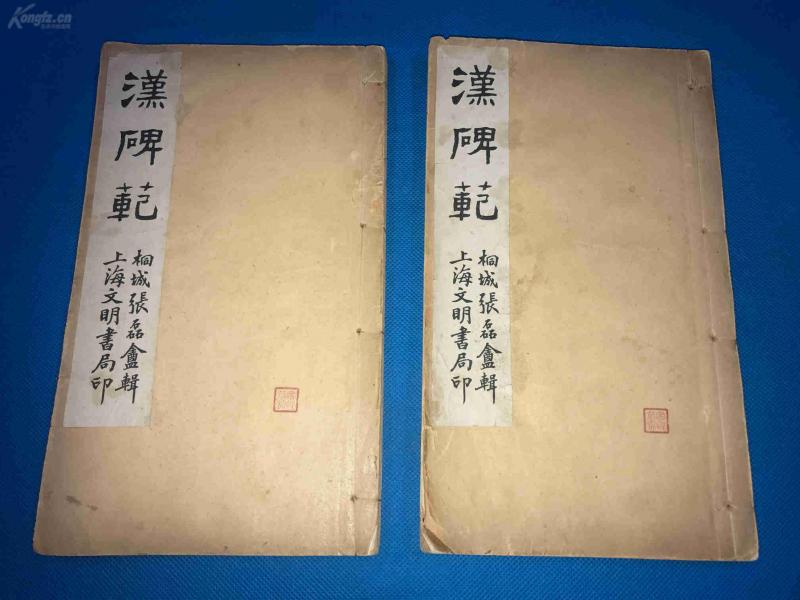 Kongfz.cn
漢碑範
桐城張磊盦輯
上海文明書局印
漢碑範
桐城張磊盦輯
上海文明書局印